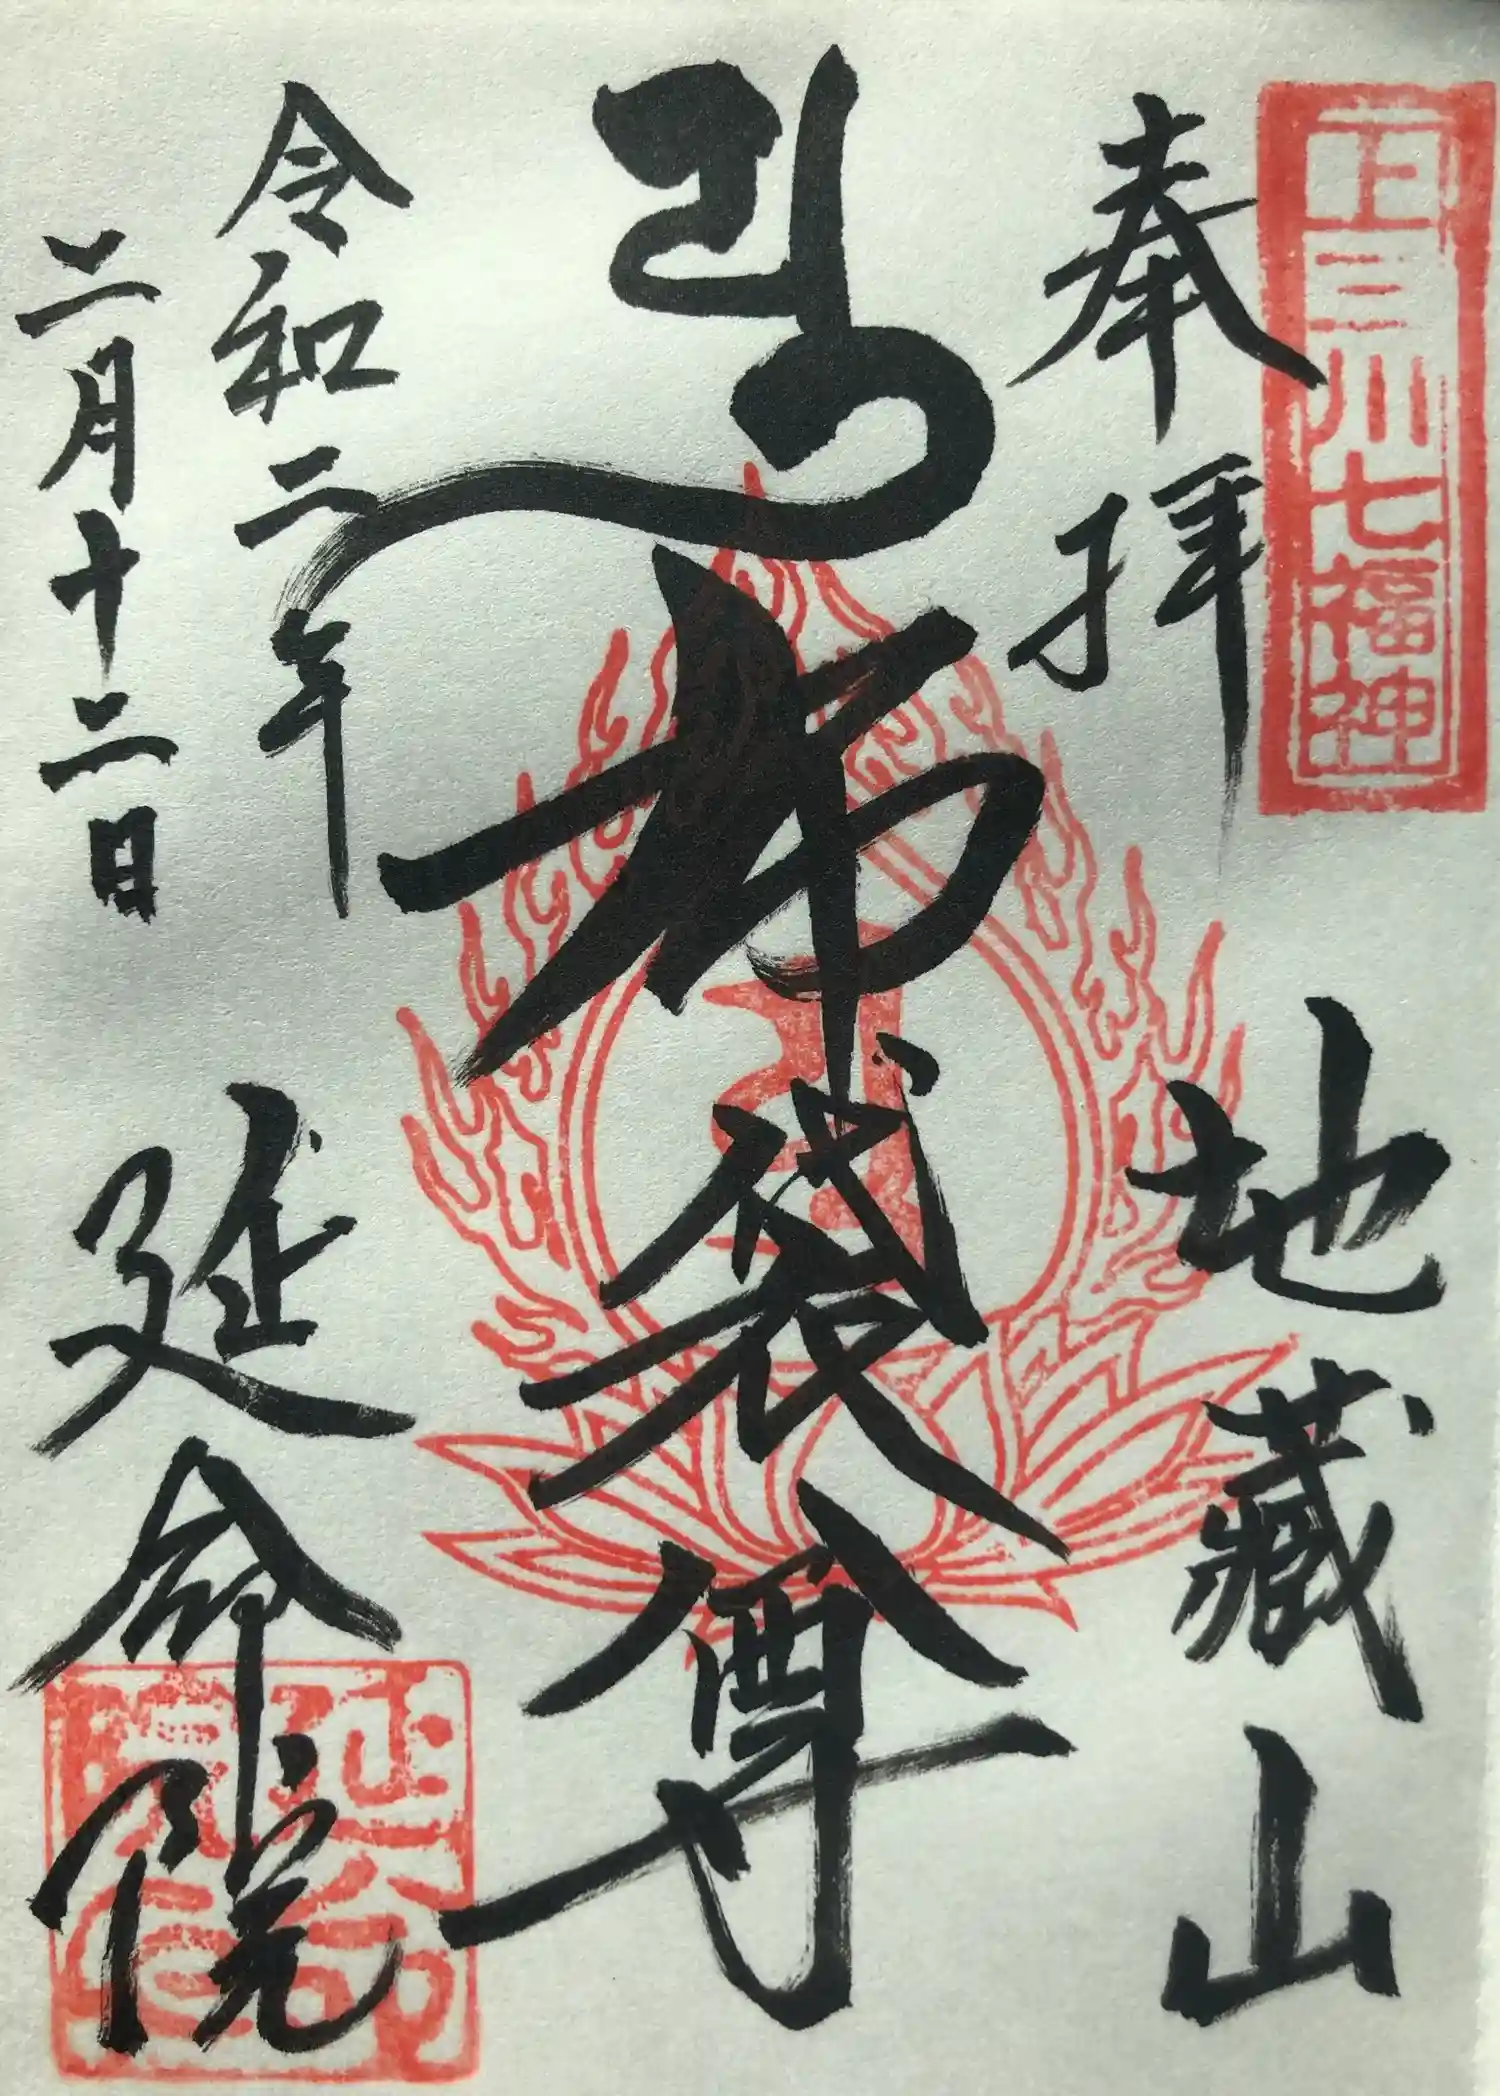 上三川七福神
奉拝
地蔵山
布袋尊
令和二年
二月十二日
延命院